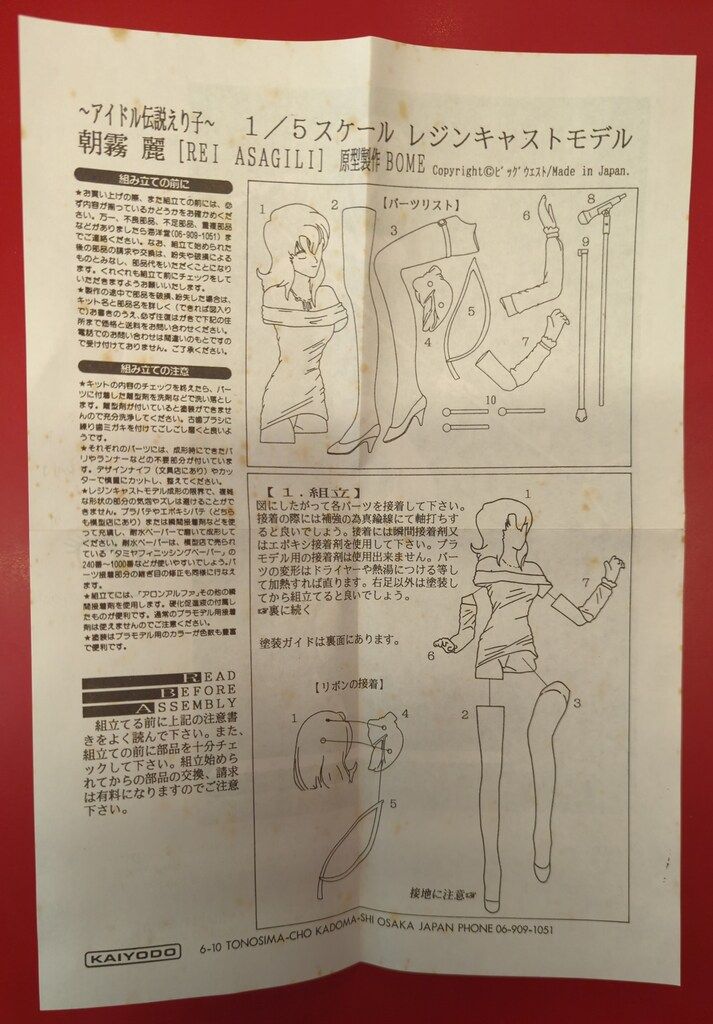 ~アイドル伝説えり子~
1/5スケール レジンキャストモデル
朝霧 麗 [REI ASAGILI] 原型製作 BOME Copyright©ビッグウエスト/Made in Japan.
組み立ての前に
★お買い上げの際、また組立ての前には、必
ず内容が揃っているかどうかをお確かめくだ
さい。万一、不良部品、不足部品、重複部品
などがありましたら海洋堂(06-909-1051)ま
でご連絡ください。なお、組立て始められた
後の部品の請求や交換は、紛失や破損による
ものとみなし、部品代をいただくことになり
ます。くれぐれも組立て前にチェックをして
いただきますようお願いいたします。
★製作の途中で部品を破損、紛失した場合は、
キット名と部品名を詳しく(できれば図入り
で)お書きのうえ、必ず往復はがきで下記の住
所まで価格と送料をお問い合わせください。
電話でのお問い合わせは間違いのもとですの
で受け付けておりません。ご了承ください。
組み立ての注意
★キットの内容のチェックを終えたら、パー
ツに付着した離型剤を洗剤などで洗い落とし
ます。離型剤が付いていると塗装ができませ
んので充分洗浄してください。古歯ブラシに
練り歯ミガキを付けてごしごし磨くと良いよ
うです。
★それぞれのパーツには、成形時にできたバ
リやランナーなどの不要部分が付いています。
デザインナイフ(文具店にあり)やカッ
ターで慎重にカットし、整えてください。
★レジンキャストモデル成形の限界で、複雑
な形状の部分の気泡やズレは避けることがで
きません。プラパテやエポキシパテ(どちら
も模型店にあり)または瞬間接着剤などを使
って充填し、耐水ペーパーで磨いて成形して
ください。耐水ペーパーは、模型店で売られ
ている「タミヤフィニッシングペーパー」の
240番~1000番などが使いやすいでしょう。パ
ーツ接着部分の継ぎ目の修正も同様に行なえ
ます。
★組立てには、「アロンアルファ」その他の瞬
間接着剤を使用します。硬化促進液の付属し
たものが便利です。通常のプラモデル用接着
剤は使えませんのでご注意ください。
★塗装はプラモデル用のカラーが色数も豊富
で便利です。
READ
BEFORE
ASSEMBLY
組立てる前に上記の注意書
きをよく読んで下さい。また、
組立ての前に部品を十分チェ
ックして下さい。組立始めら
れてからの部品の交換、請求
は有料になりますのでご注意
下さい。
【パーツリスト】
1
2
3
4
5
6
7
8
9
10
【1.組立】
図にしたがって各パーツを接着して下さい。
接着の際には補強の為真鍮線にて軸打ちす
ると良いでしょう。接着には瞬間接着剤又
はエポキシ接着剤を使用して下さい。プラ
モデル用の接着剤は使用出来ません。パー
ツの変形はドライヤーや熱湯につける等し
て加熱すれば直ります。右足以外は塗装し
てから組立てると良いでしょう。
☞裏に続く
塗装ガイドは裏面にあります。
【リボンの接着】
1
4
5
1
7
6
2
3
接地に注意☞
KAIYODO
6-10 TONOSIMA-CHO KADOMA-SHI OSAKA JAPAN PHONE 06-909-1051